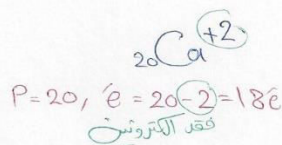 ₂₀Ca⁺²
P=20, é = 20-2=18é
فقد الكترونين